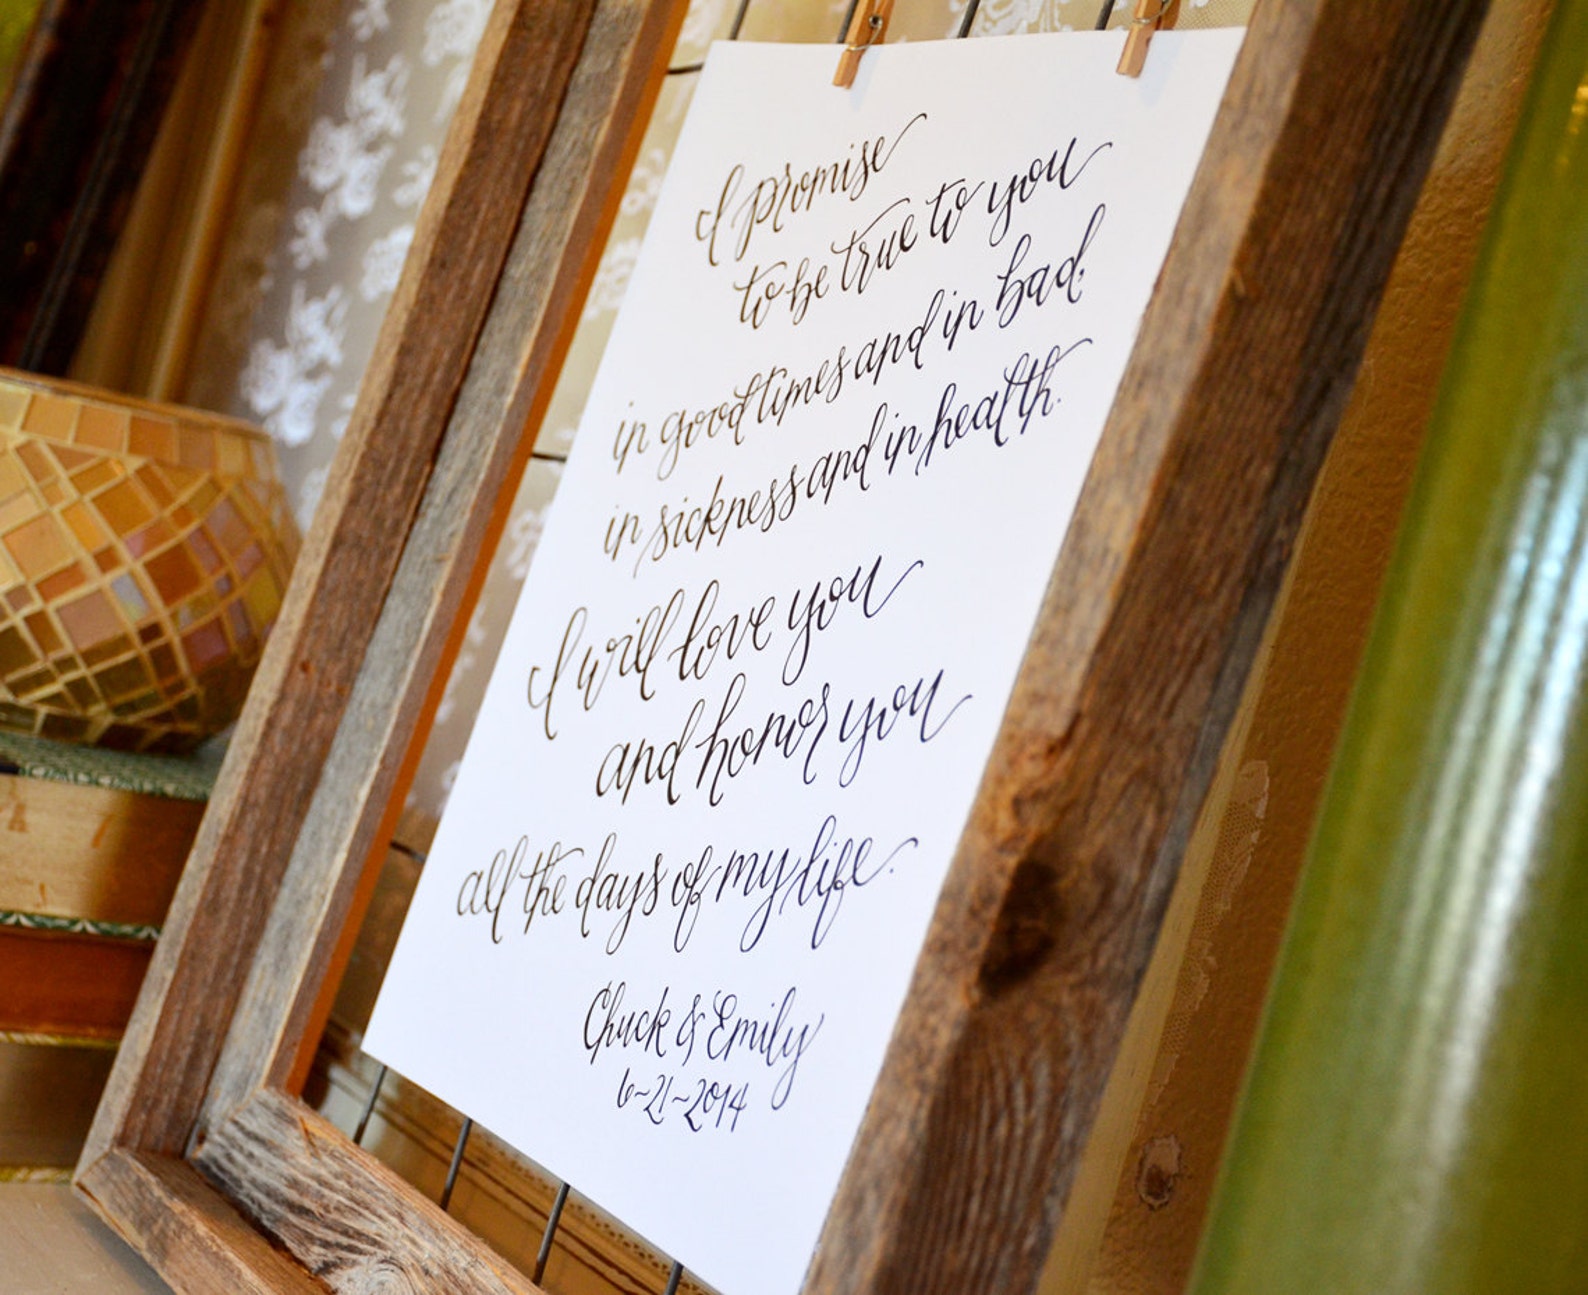 I promise
to be true to you
in good times and in bad,
in sickness and in health.
I will love you
and honor you
all the days of my life.
Chuck & Emily
6~21~2014